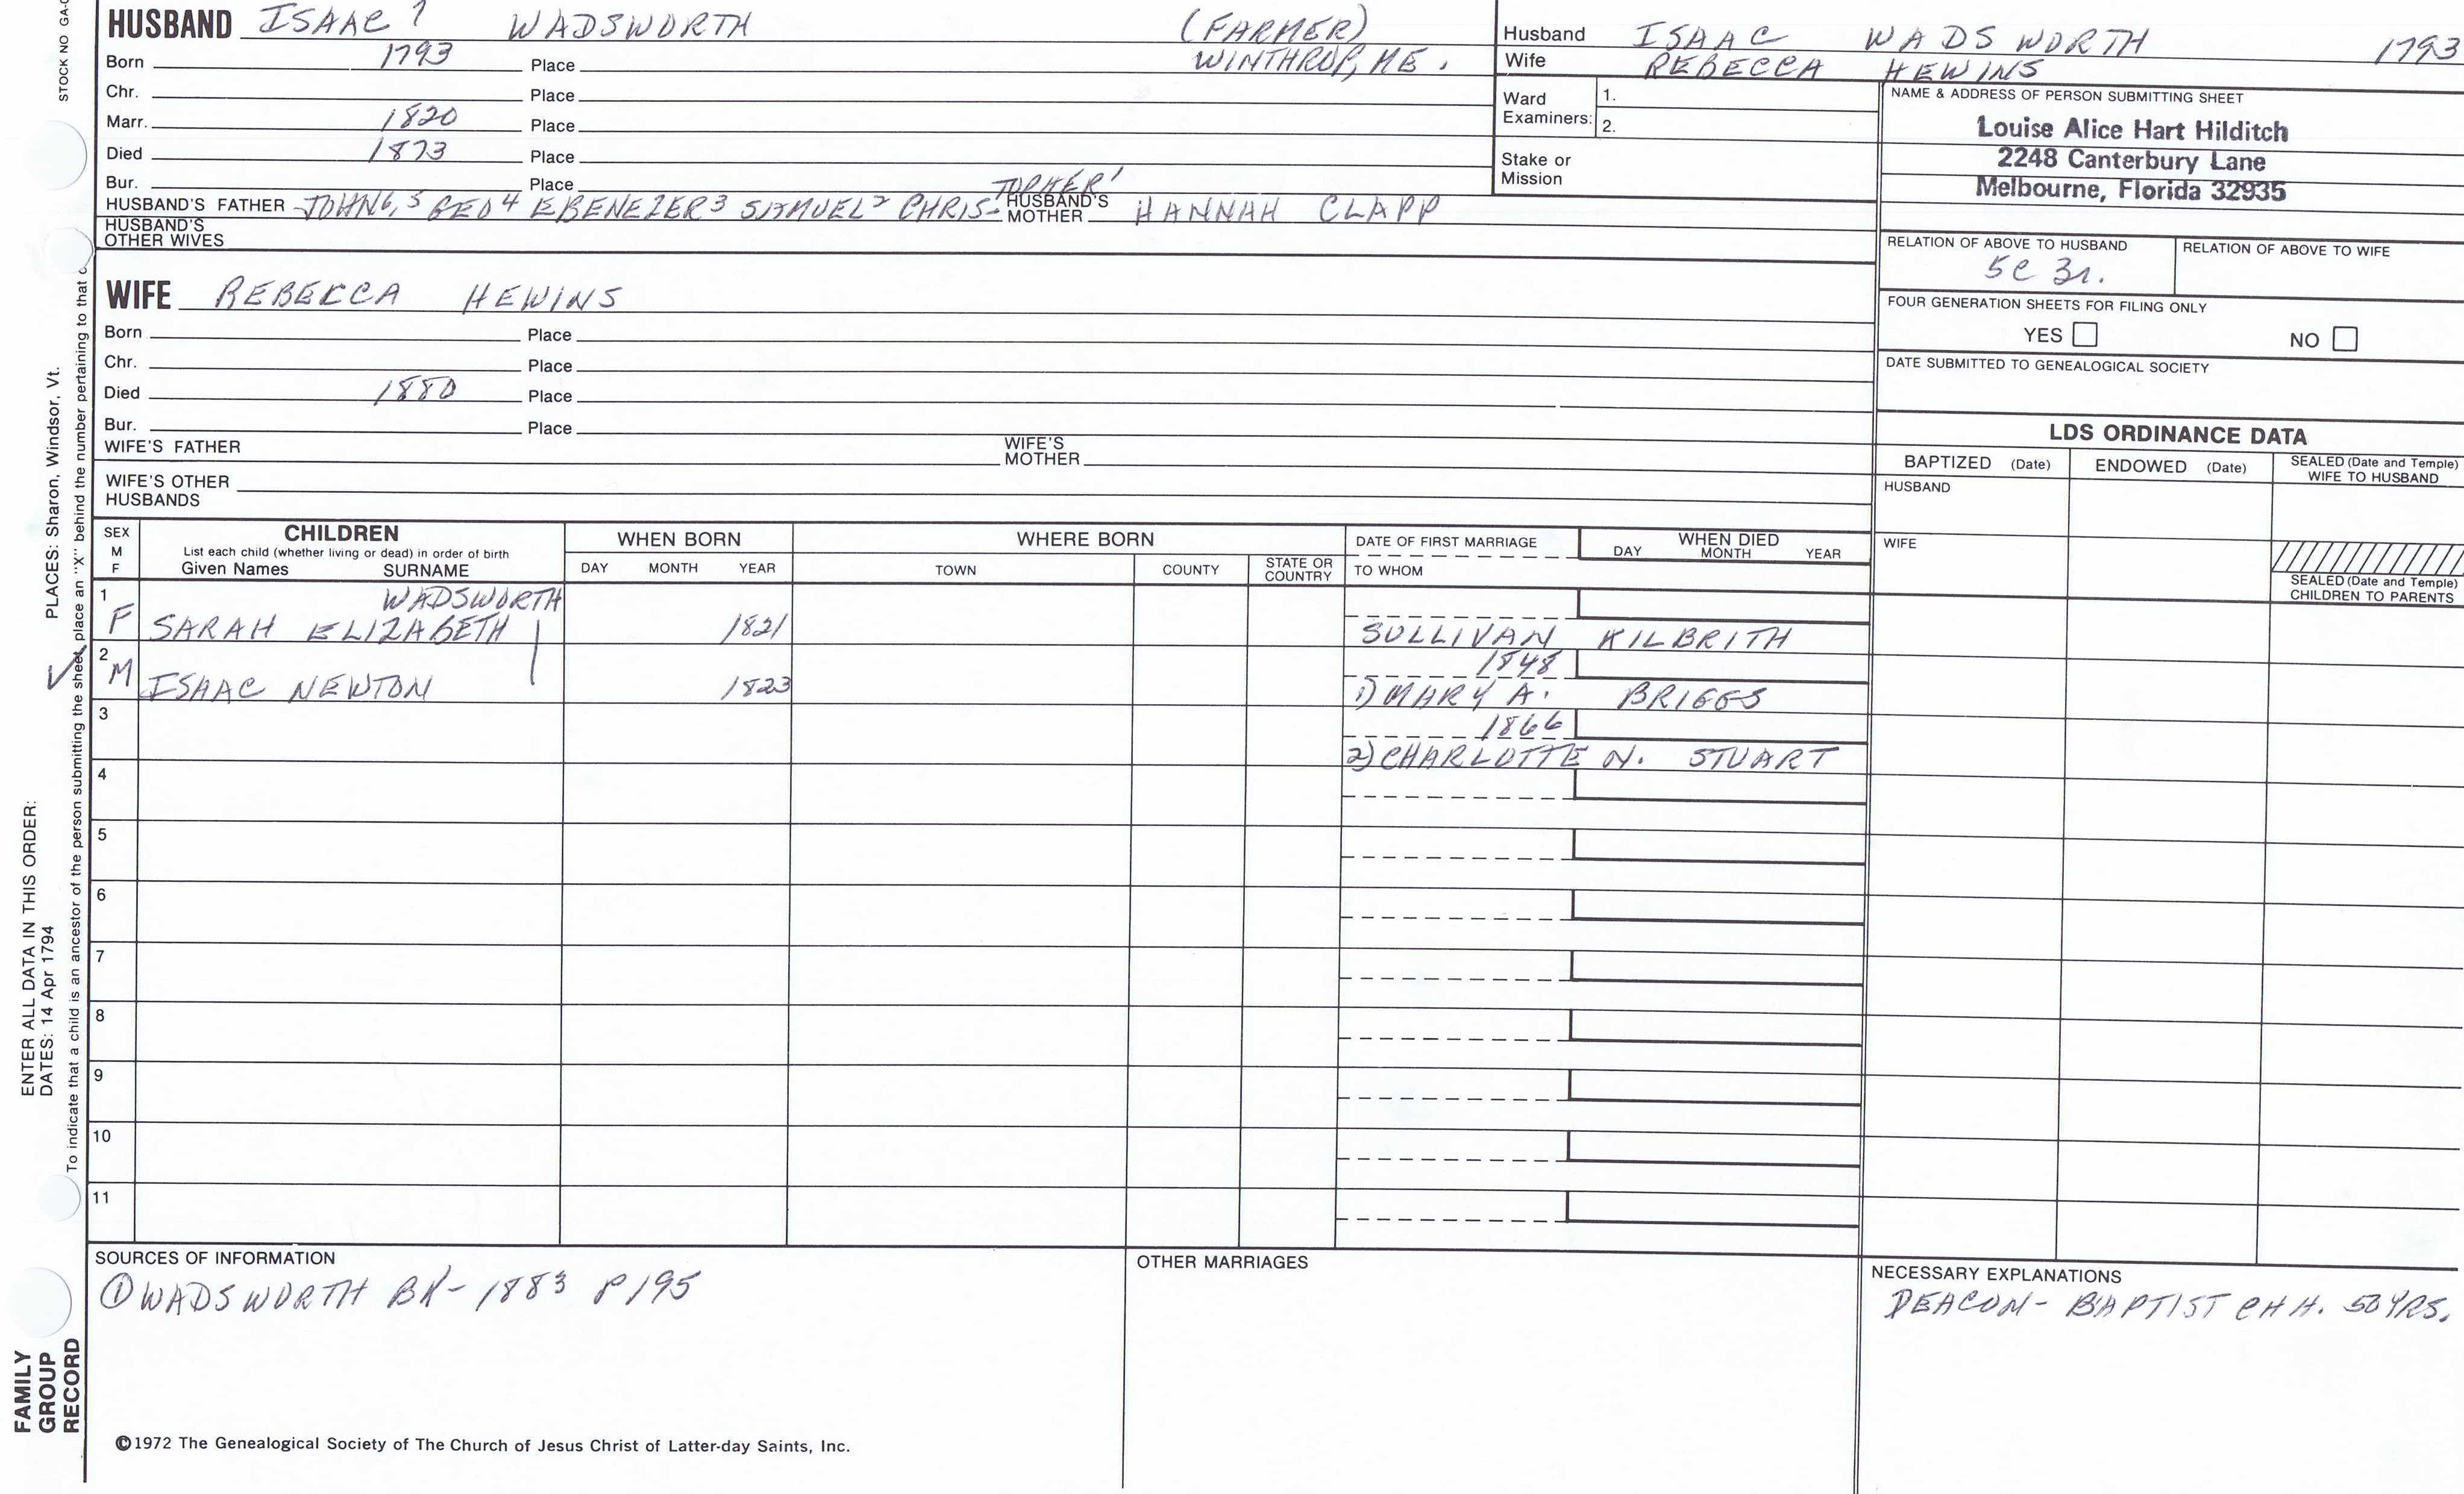 HUSBAND ISAAC 7 WADSWORTH (FARMER)
Born 1793 Place WINTHROP, ME.
Chr. Place
Marr. 1820 Place
Died 1873 Place
Bur. Place
HUSBAND'S FATHER JOHN6,5 GEO4 EBENEZER3 SAMUEL2 CHRIS-TOPHER1 HUSBAND'S MOTHER HANNAH CLAPP
HUSBAND'S OTHER WIVES
WIFE REBECCA HEWINS
Born Place
Chr. Place
Died 1880 Place
Bur. Place
WIFE'S FATHER WIFE'S MOTHER
WIFE'S OTHER HUSBANDS
Husband ISAAC WADSWORTH 1793
Wife REBECCA HEWINS
Ward Examiners: 1.
2.
Stake or Mission
NAME & ADDRESS OF PERSON SUBMITTING SHEET
Louise Alice Hart Hilditch
2248 Canterbury Lane
Melbourne, Florida 32935
RELATION OF ABOVE TO HUSBAND RELATION OF ABOVE TO WIFE
5C 3r.
FOUR GENERATION SHEETS FOR FILING ONLY
YES NO
DATE SUBMITTED TO GENEALOGICAL SOCIETY
LDS ORDINANCE DATA
BAPTIZED (Date) ENDOWED (Date) SEALED (Date and Temple) WIFE TO HUSBAND
HUSBAND
WIFE
SEALED (Date and Temple) CHILDREN TO PARENTS
SEX M F
CHILDREN
List each child (whether living or dead) in order of birth
Given Names SURNAME
WHEN BORN
DAY MONTH YEAR
WHERE BORN
TOWN COUNTY STATE OR COUNTRY
DATE OF FIRST MARRIAGE
TO WHOM
WHEN DIED
DAY MONTH YEAR
1 WADSWORTH
F SARAH ELIZABETH 1821 SULLIVAN KILBRITH
2 1848
M ISAAC NEWTON 1823 1) MARY A. BRIGGS
3 1866
2) CHARLOTTE N. STUART
4
5
6
7
8
9
10
11
SOURCES OF INFORMATION
① WADSWORTH BK- 1883 P195
OTHER MARRIAGES
NECESSARY EXPLANATIONS
DEACON- BAPTIST CHH. 50 YRS.
©1972 The Genealogical Society of The Church of Jesus Christ of Latter-day Saints, Inc.
STOCK NO GA-
PLACES: Sharon, Windsor, Vt.
ENTER ALL DATA IN THIS ORDER:
DATES: 14 Apr 1794
To indicate that a child is an ancestor of the person submitting the sheet, place an "X" behind the number pertaining to that
FAMILY
GROUP
RECORD